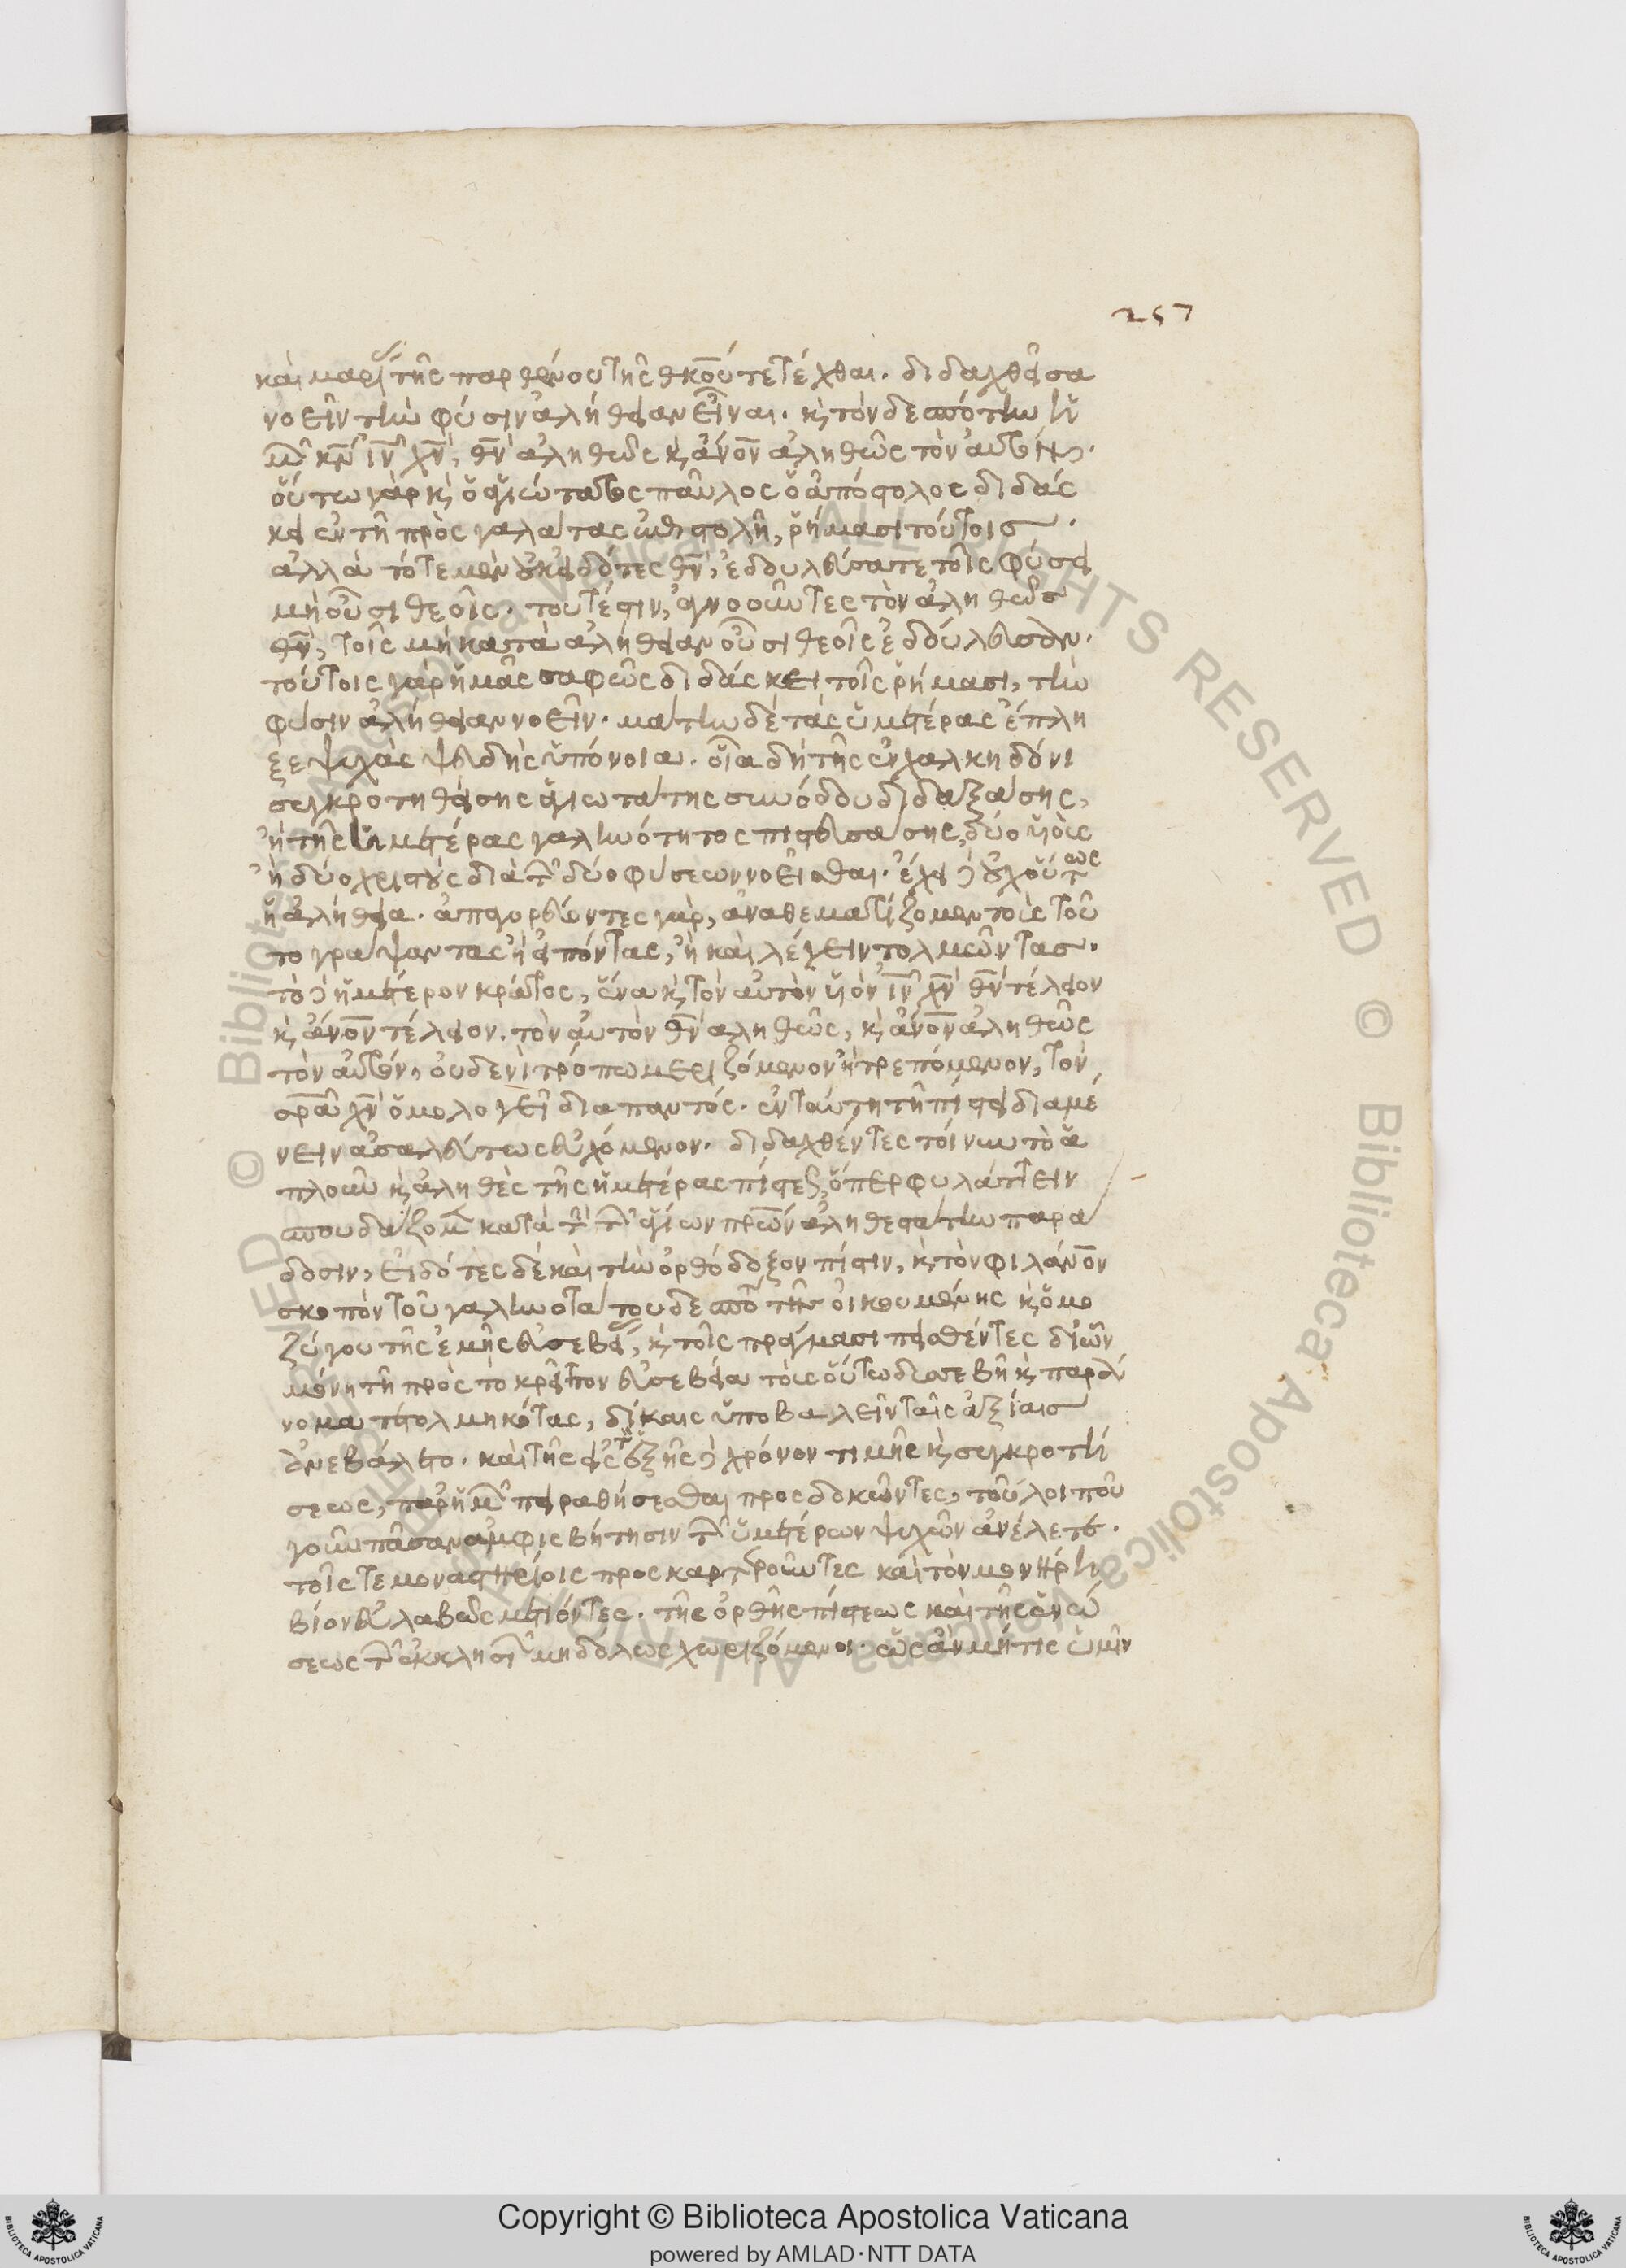 257
καὶ μαρί(ας) τῆς παρθένου τῆς θκ̅ου τετέχθαι. διδαχθεῖσα
νοεῖν τὴν φύσιν ἀλήθειαν εἶναι. κὶ τὸν δεσπότην ἡ
μῶν κν̅ ιν̅ χν̅, θν̅ ἀληθῶς κὶ ἄνον̅ ἀληθῶς τὸν αὐτόν.
οὕτω γὰρ κὶ ὁ ἁγιώτατος παῦλος ὁ ἀπόστολος διδάσ
κει ἐν τῆ πρὸς γαλάτας ἐπιστολῆ, ῥήμασι τούτοις.
ἀλλὰ τότε μὲν οὐκ εἰδότες θν̅, ἐδουλεύσατε τοῖς φύσει
μὴ οὖσι θεοῖς. τουτέστιν, ἀγνοοῦντες τὸν ἀληθῶς
θν̅, τοῖς μὴ κατὰ ἀλήθειαν οὖσι θεοῖς ἐδούλευσαν.
τούτοις γὰρ ἡμᾶς σαφῶς διδάσκει τοῖς ῥήμασι, τὴν
φύσιν ἀλήθειαν νοεῖν. μάτην δὲ τὰς ὑμετέρας ἔπλη
ξε ψυχὰς ψευδὴς ὑπόνοια. οἷα δὴ τῆς ἐν χαλκηδόνι
συγκροτηθείσης ἁγιωτάτης συνόδου διδαξάσης,
ἢ τῆς ἡμετέρας γαληνότητος πιστευσάσης, δύο υἱοὺς
ἢ δύο χριστοὺς διὰ τῶν δύο φύσεων νοεῖσθαι. ἔχει δὲ οὐχ οὕτως
ἡ ἀλήθεια. ἀπαγορεύοντες γὰρ, ἀναθεματίζομεν τοὺς τοῦ
το γράψαντας ἢ εἰπόντας, ἢ καὶ λέγειν τολμῶντας.
τὸ δὲ ἡμέτερον κράτος, ἕνα κὶ τὸν αὐτὸν υἱὸν ιν̅ χν̅ θν̅ τέλειον
κὶ ἄνον̅ τέλειον. τὸν αὐτὸν θν̅ ἀληθῶς, κὶ ἄνον̅ ἀληθῶς
τὸν αὐτόν, οὐδενὶ τρόπω μεριζόμενον ἢ τρεπόμενον, τὸν
σρ̅α χν̅ ὁμολογεῖ διαπαντός. ἐν ταύτη τῆ πίστει διαμέ
νειν ἀσαλεύτως εὐχόμενον. διδαχθέντες τοίνυν τὸ ἁ
πλοῦν κὶ ἀληθὲς τῆς ἡμετέρας πίστεως, ὅπερ φυλάττειν
σπουδάζομεν κατὰ τὴν τῶν ἁγίων πρ̅ων ἀληθεστάτην παρά
δοσιν, εἰδότες δὲ καὶ τὴν ὀρθόδοξον πίστιν, κὶ τὸν φιλάνον̅
σκοπὸν τοῦ γαληνοτάτου δεσπό τῆς οἰκουμένης κὶ ὁμο
ζύγου τῆς ἐμῆς εὐσεβείας, κὶ τοῖς πράγμασι πεισθέντες δι' ὧν
μόνη τῆ πρὸς τὸ κρεῖττον εὐσεβεία τοὺς οὕτω δυσσεβῆ κὶ παρά
νομα τετολμηκότας, δίκαις ὑποβαλεῖν ταῖς ἀξίαις
ἀνεβάλετο. καὶ τῆς εἰς τὸν ἑξῆς δὲ χρόνον τιμῆς κὶ συγκροτή
σεως, παρ' ἡμῶν πειραθήσεσθαι προσδοκῶντες, τοῦ λοιποῦ
γοῦν πᾶσαν ἀμφισβήτησιν τῶν ὑμετέρων ψυχῶν ἀνέλετε.
τοῖς τε μοναστηρίοις προσκαρτεροῦντες καὶ τὸν μονήρη
βίον εὐλαβῶς μετιόντες. τῆς ὀρθῆς πίστεως καὶ τῆς ἑνώ
σεως τῶν ἐκκλησιῶν μηδόλως χωριζόμενοι. ὡς ἂν μή τις ὑμῖν
Copyright © Biblioteca Apostolica Vaticana
powered by AMLAD·NTT DATA